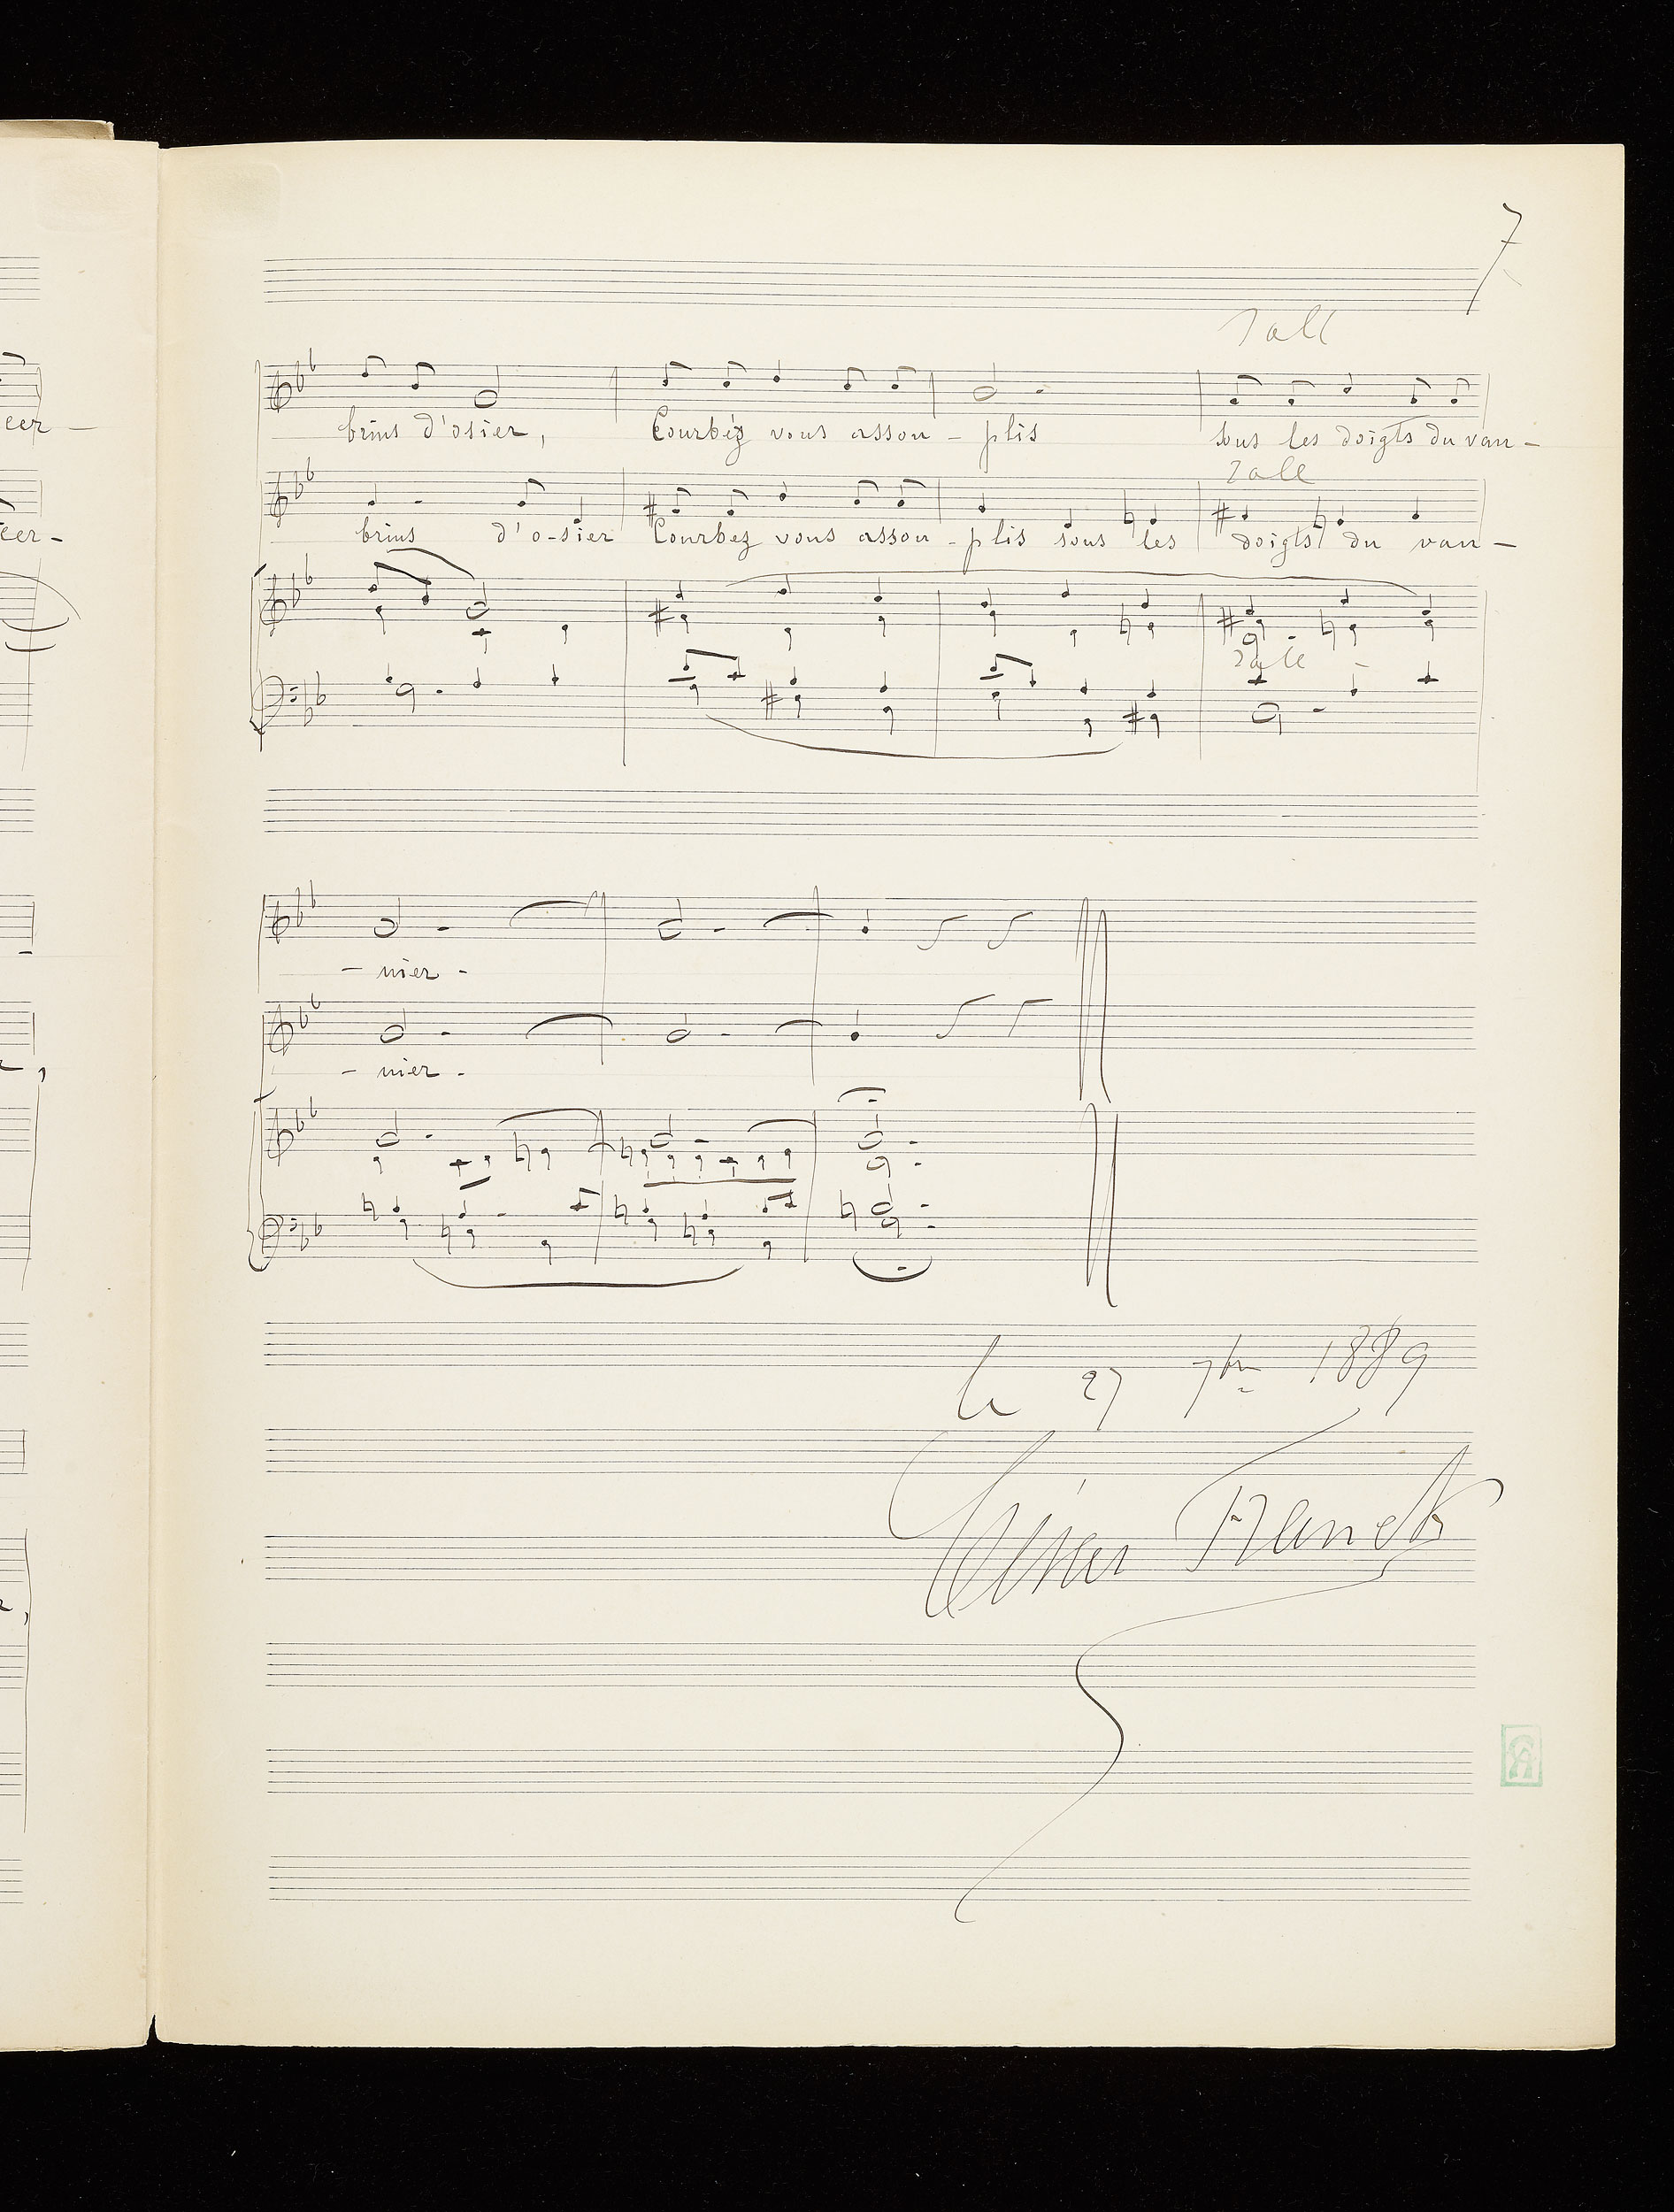 7
rall
brins d'osier, Courbez vous assou - plis sous les doigts du van -
rall
brins d'o-sier Courbez vous assou - plis sous les doigts du van -
rall
- nier -
- nier -
le 27 7bre 1889
César Franck